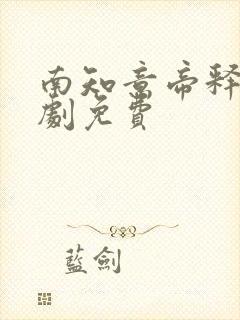 南知意帝释
劇免費
藍劍